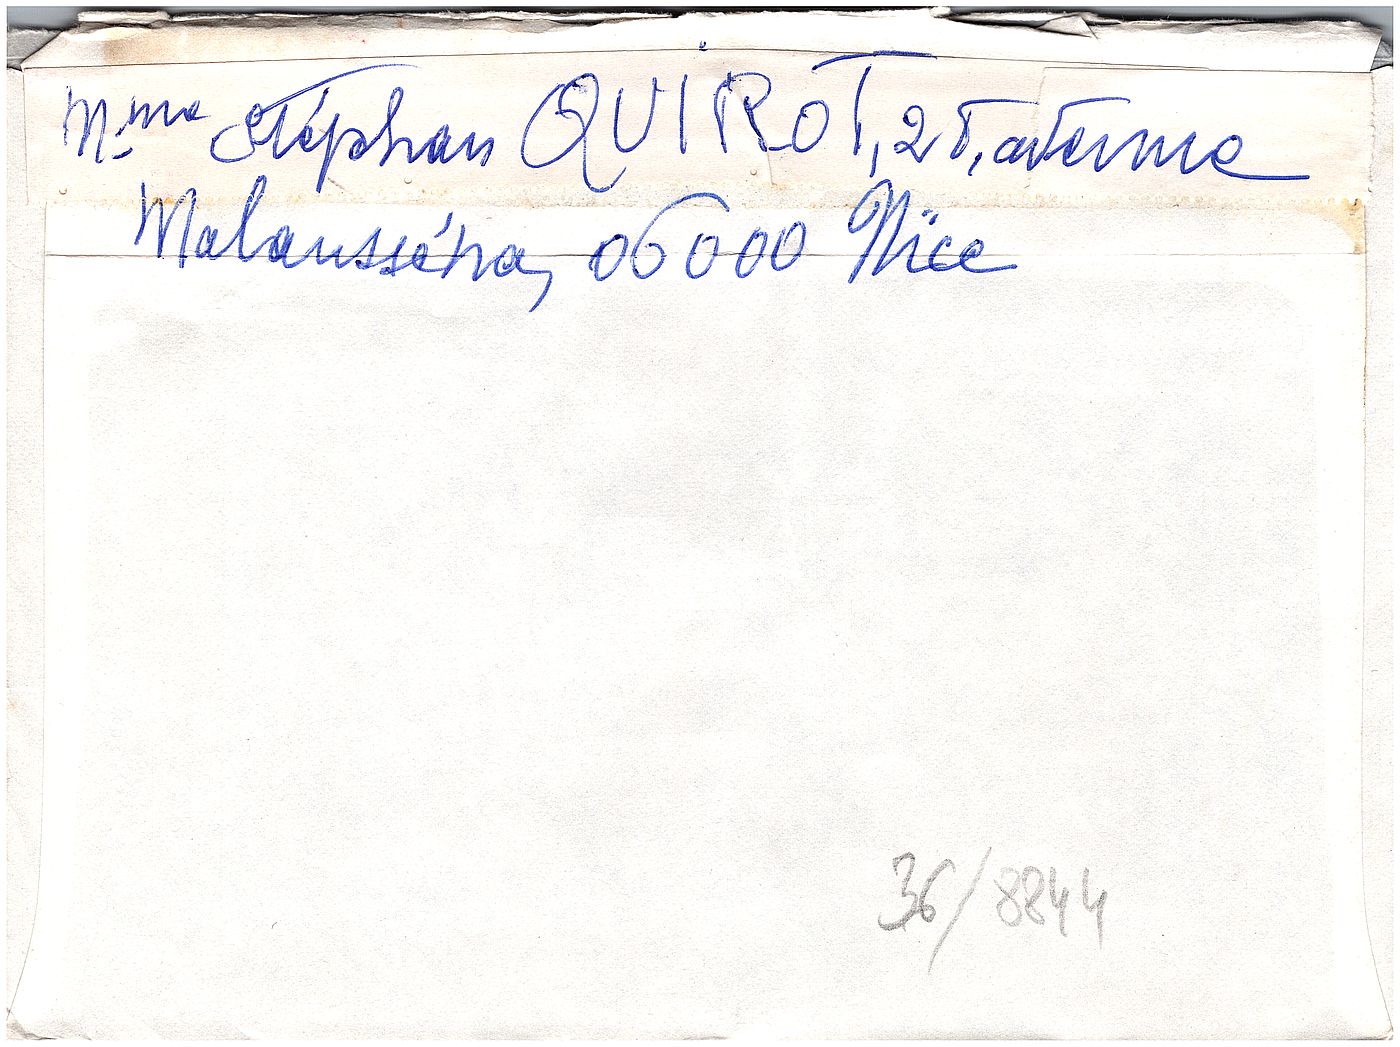 Mme Stéphan QUIROT, 25, avenue
Malausséna, 06000 Nice
36/8844